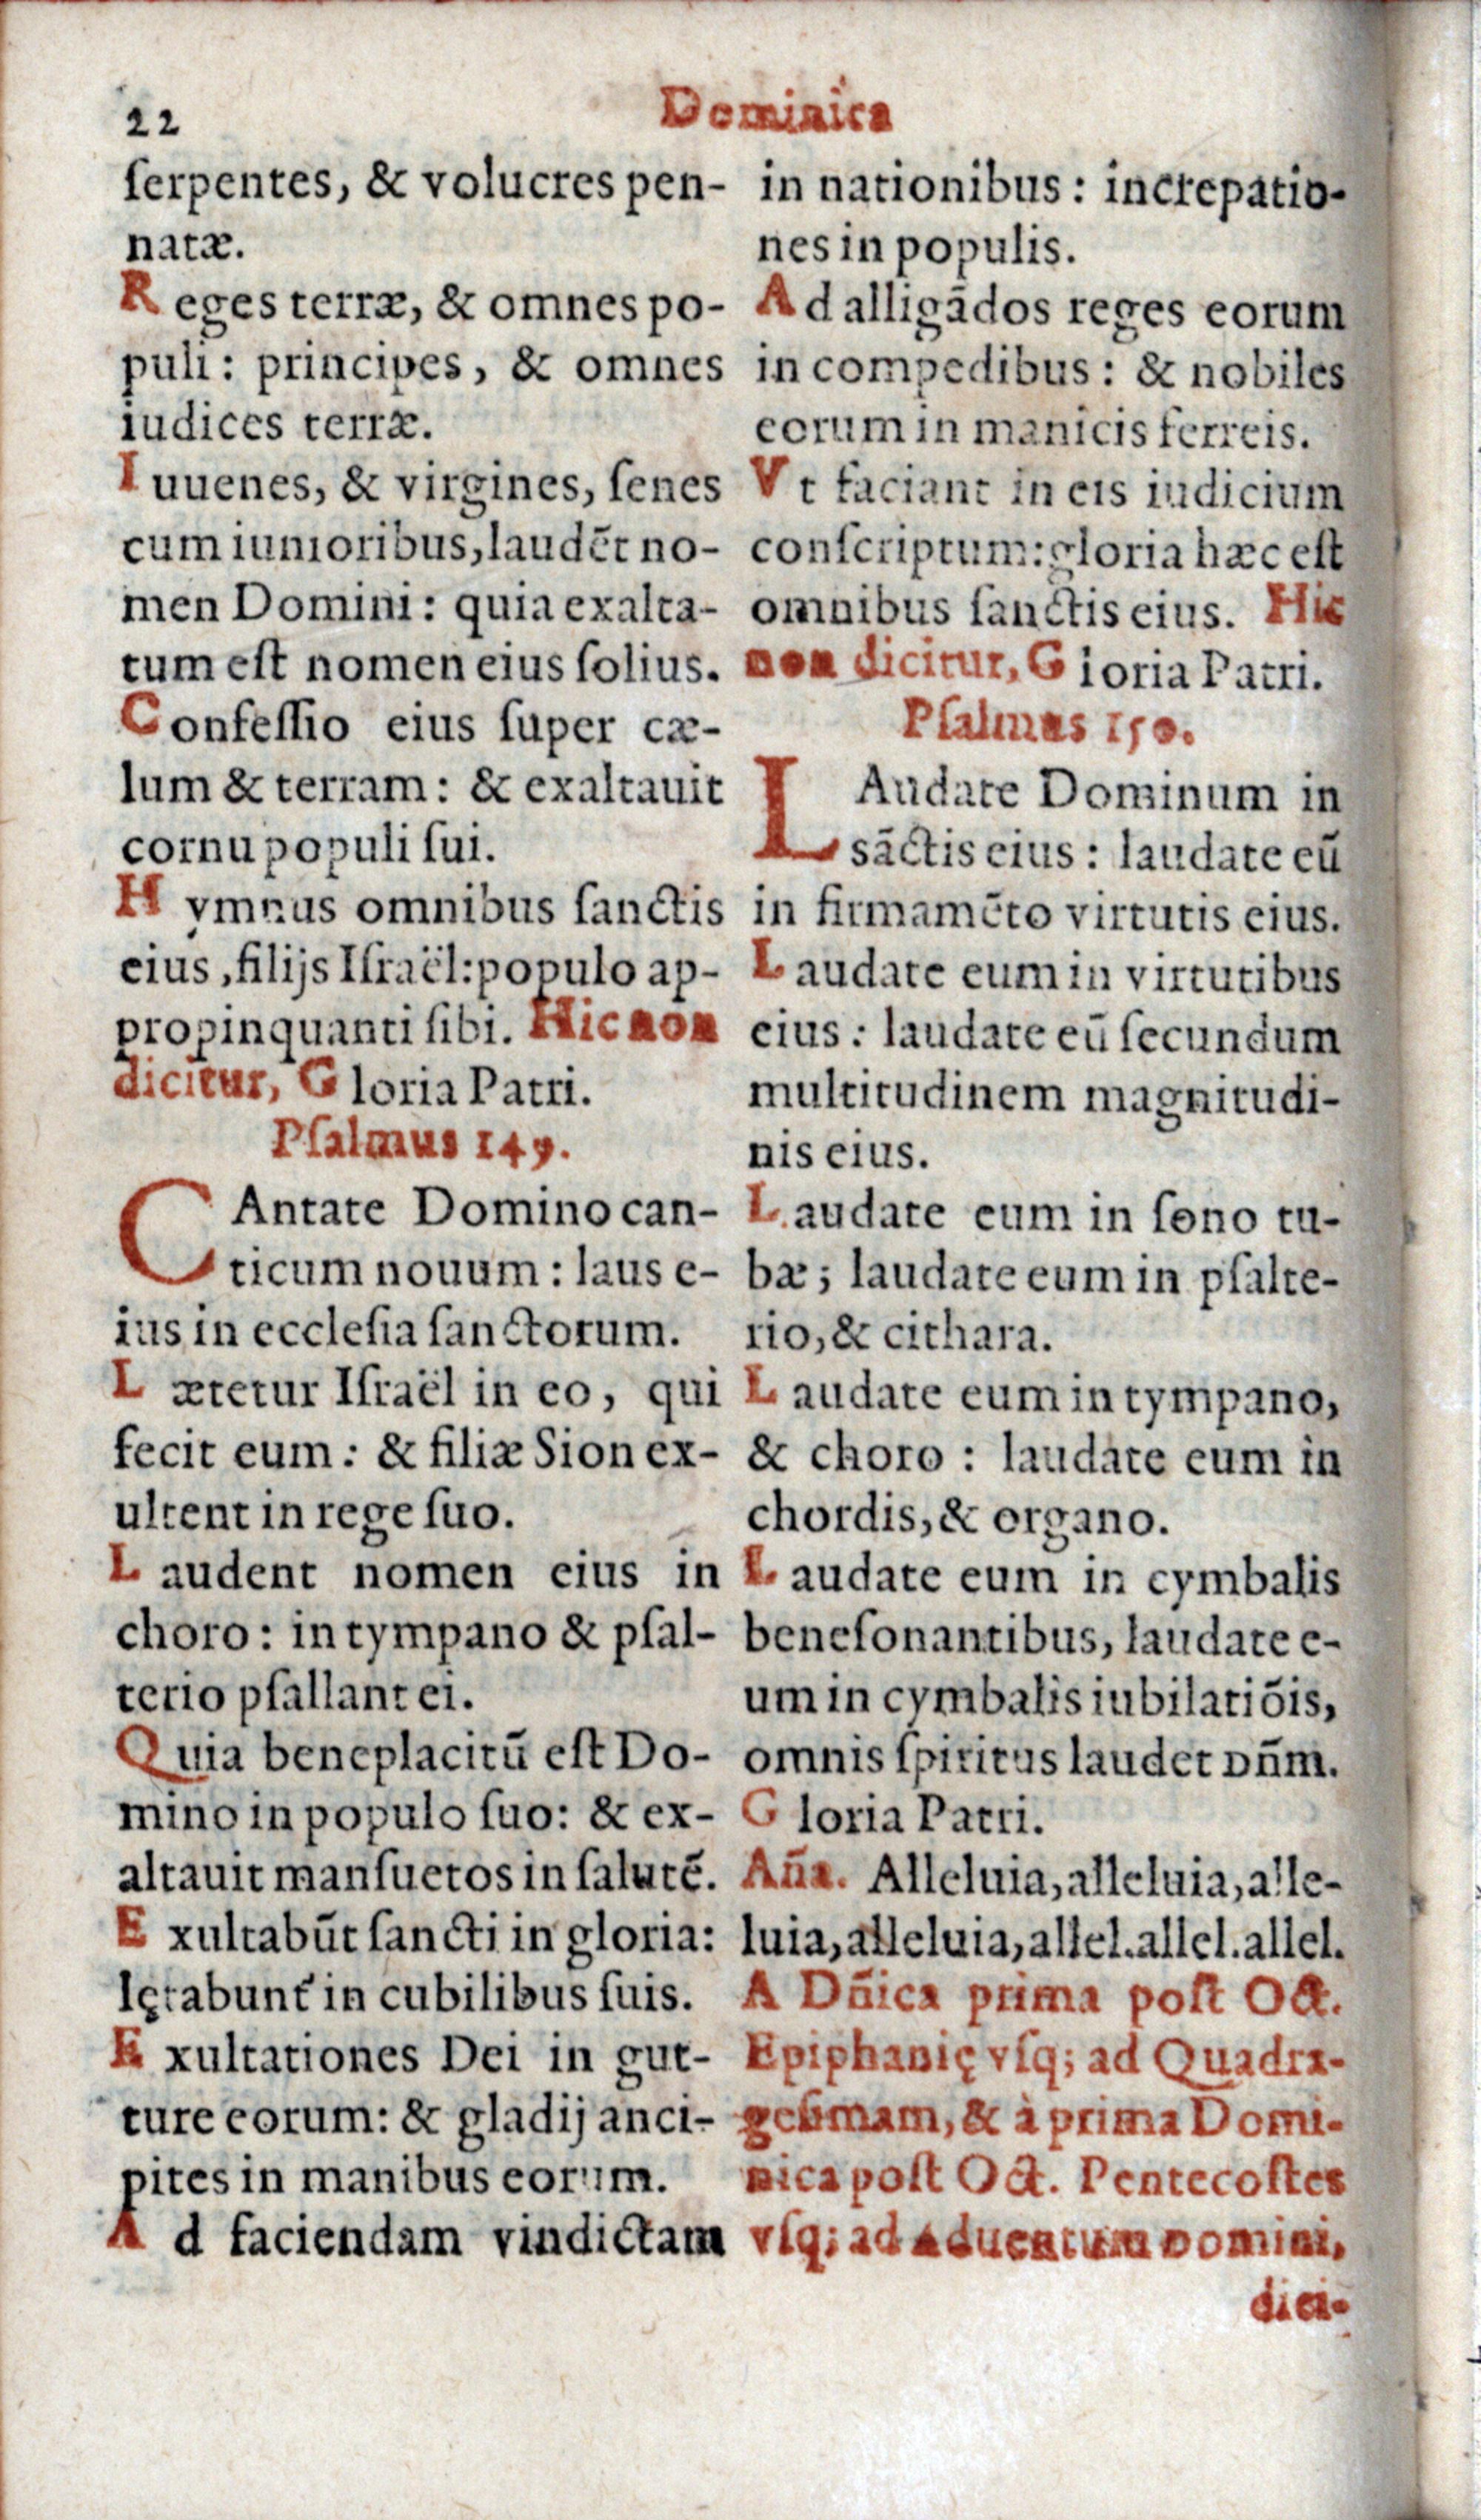 22
Dominica
ſerpentes, & volucres pen-
natæ.
R eges terræ, & omnes po-
puli: principes, & omnes
iudices terræ.
I uuenes, & virgines, ſenes
cum iunioribus, laudēt no-
men Domini: quia exalta-
tum eſt nomen eius ſolius.
C onfeſſio eius ſuper cæ-
lum & terram: & exaltauit
cornu populi ſui.
H ymnus omnibus ſanctis
eius, filijs Iſraël: populo ap-
propinquanti ſibi. Hic non
dicitur, G loria Patri.
Pſalmus 149.
C Antate Domino can-
ticum nouum: laus e-
ius in eccleſia ſanctorum.
L ætetur Iſraël in eo, qui
fecit eum: & filiæ Sion ex-
ultent in rege ſuo.
L audent nomen eius in
choro: in tympano & pſal-
terio pſallant ei.
Quia beneplacitū eſt Do-
mino in populo ſuo: & ex-
altauit manſuetos in ſalutē.
E xultabūt ſancti in gloria:
lętabunt᷑ in cubilibus ſuis.
E xultationes Dei in gut-
ture eorum: & gladij anci-
pites in manibus eorum.
A d faciendam vindictam
in nationibus: increpatio-
nes in populis.
A d alligādos reges eorum
in compedibus: & nobiles
eorum in manicis ferreis.
V t faciant in eis iudicium
conſcriptum: gloria hæc eſt
omnibus ſanctis eius. Hic
non dicitur, G loria Patri.
Pſalmus 150.
L Audate Dominum in
sāctis eius: laudate eū
in firmamēto virtutis eius.
L audate eum in virtutibus
eius: laudate eū ſecundum
multitudinem magnitudi-
nis eius.
L audate eum in ſono tu-
bæ; laudate eum in pſalte-
rio, & cithara.
L audate eum in tympano,
& choro: laudate eum in
chordis, & organo.
L audate eum in cymbalis
beneſonantibus, laudate e-
um in cymbalis iubilatiōis,
omnis ſpiritus laudet Dn̄m.
G loria Patri.
Añа. Alleluia, alleluia, alle-
luia, alleluia, allel. allel. allel.
A Dn̄ica prima poſt Oct.
Epiphanię vſq; ad Quadra-
geſimam, & à prima Domi-
nica poſt Oct. Pentecoſtes
vſq; ad Aduentum Domini,
dici-